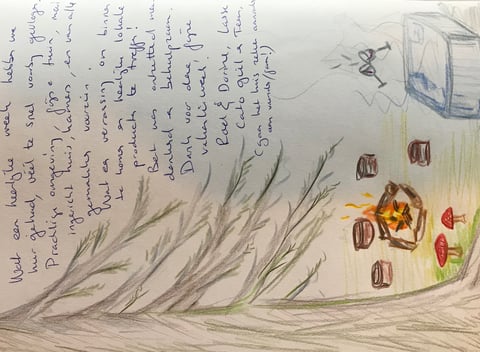 Wat een heerlijke week hebben we
hier gehad, veel te snel voorbij gevlogen.
Prachtige omgeving, fijne tuin, mooi
ingericht huis, kamers, en van alle
gemakken voorzien!
Wat een verrassing om binnen
te komen en heerlijke lokale
producten te treffen!
Bart was ontzettend
en behulpzaam.
Dank voor deze fijne
vakantieweek!
Roel & Dorine, Lasse
Cato
(gaan het huis zeker
en vrienden/fam!)